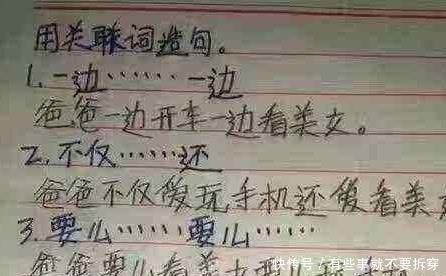 用关联词造句。
1.一边……一边
爸爸一边开车一边看美女。
2.不仅……还
爸爸不仅爱玩手机还爱看美
3.要么……要么……
爸爸要么看美女要
快传号/有些事就不要拆穿